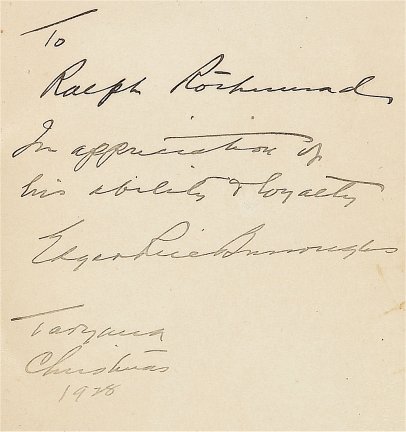 To
Ralph Rothmund
In appreciation of
his ability & loyalty
Edgar Rice Burroughs
Tarzana
Christmas
1928